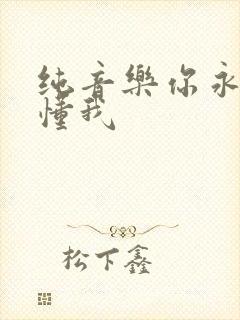 纯音樂你永
懂我
松下鑫